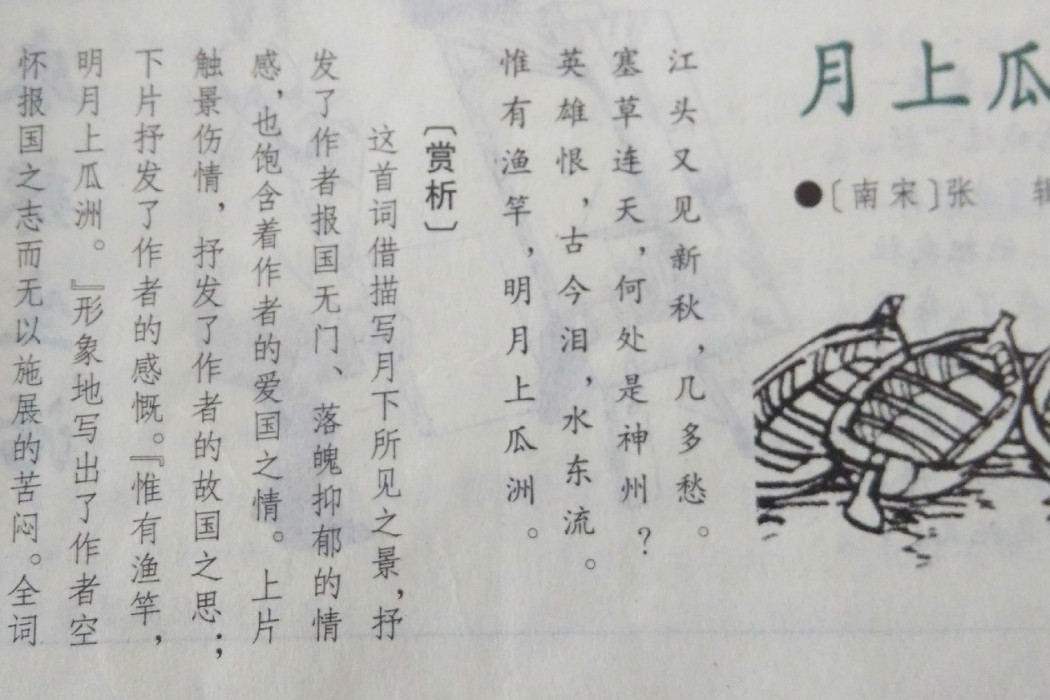 月上瓜
●〔南宋〕张 辑
江头又见新秋，几多愁。
塞草连天，何处是神州？
英雄恨，古今泪，水东流。
惟有渔竿，明月上瓜洲。
〔赏析〕
这首词借描写月下所见之景，抒
发了作者报国无门、落魄抑郁的情
感，也饱含着作者的爱国之情。上片
触景伤情，抒发了作者的故国之思；
下片抒发了作者的感慨。『惟有渔竿，
明月上瓜洲。』形象地写出了作者空
怀报国之志而无以施展的苦闷。全词